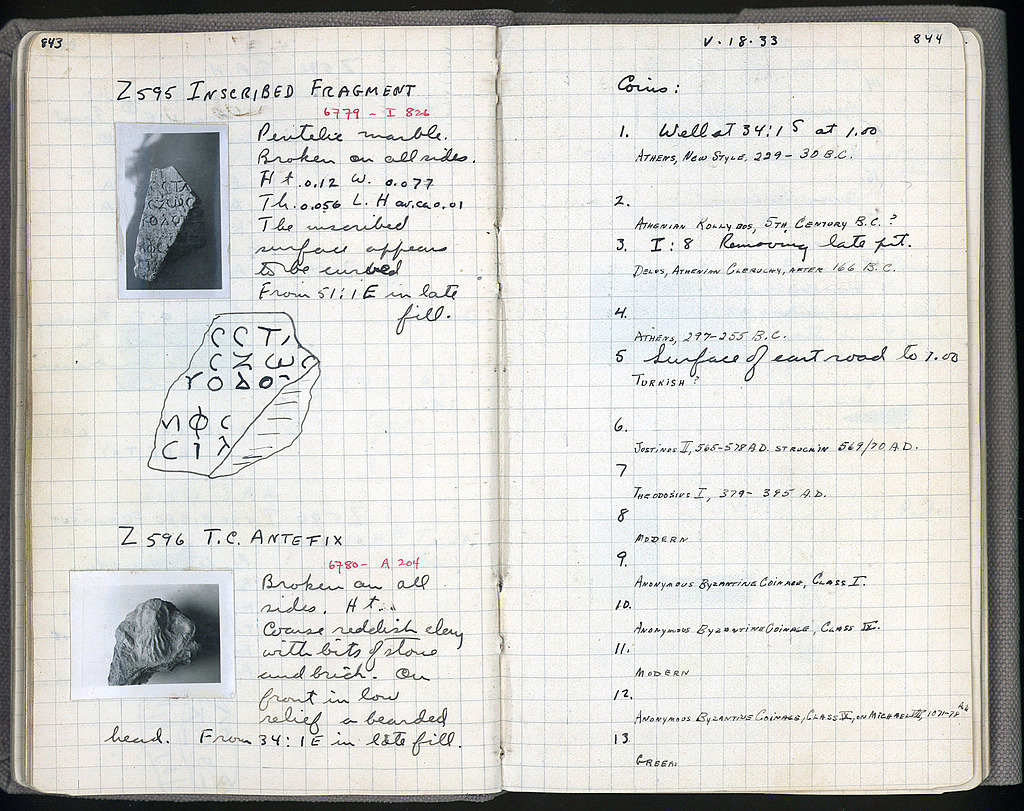 843
Z 595 INSCRIBED FRAGMENT
6779 - I 826
Pentelic marble.
Broken on all sides.
Ht. 0.12 W. 0.077
Th. 0.056 L. H av. ca 0.01
The inscribed
surface appears
to be curved
From 51:1E in late
fill.
ϹϹΤ
ϹΖωϹ
ΥΟΔΟ
ΗΦϹ
ϹΙλ
Z 596 T.C. ANTEFIX
6780 - A 204
Broken on all
sides. Ht..
Coarse reddish clay
with bits of stone
and brick. On
front in low
relief a bearded
head. From 34:1E in late fill.
V.18.33
844
Coins:
1. Well at 34:15 at 1.00
ATHENS, NEW STYLE, 229-30 B.C.
2.
ATHENIAN KOLLYBOS, 5TH CENTURY B.C.?
3. I:8 Removing late pit.
DELOS, ATHENIAN CLERUCHY, AFTER 166 B.C.
4.
ATHENS, 297-255 B.C.
5 Surface of east road to 1.00
TURKISH?
6.
JUSTINUS II, 565-578 A.D. STRUCK IN 569/70 A.D.
7
THEODOSIUS I, 379-395 A.D.
8
MODERN
9.
ANONYMOUS BYZANTINE COINAGE, CLASS I.
10.
ANONYMOUS BYZANTINE COINAGE, CLASS IV.
11.
MODERN
12.
ANONYMOUS BYZANTINE COINAGE, CLASS IV, ON MICHAEL VII, 1071-78
13.
GREEK